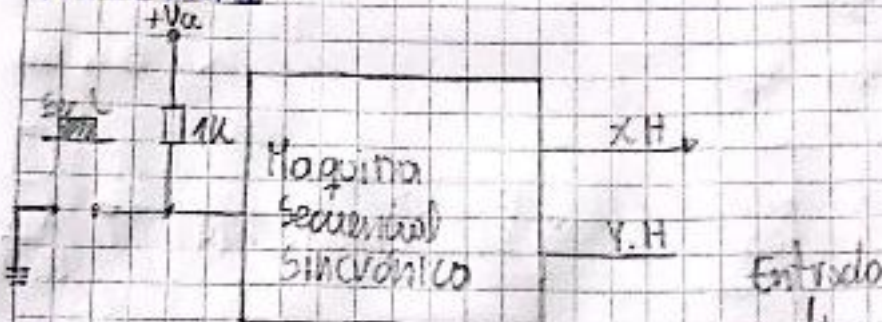 +Vcc
1K
Maquina
Secuencial
Sincrónico
X.H
Y.H
Entrada